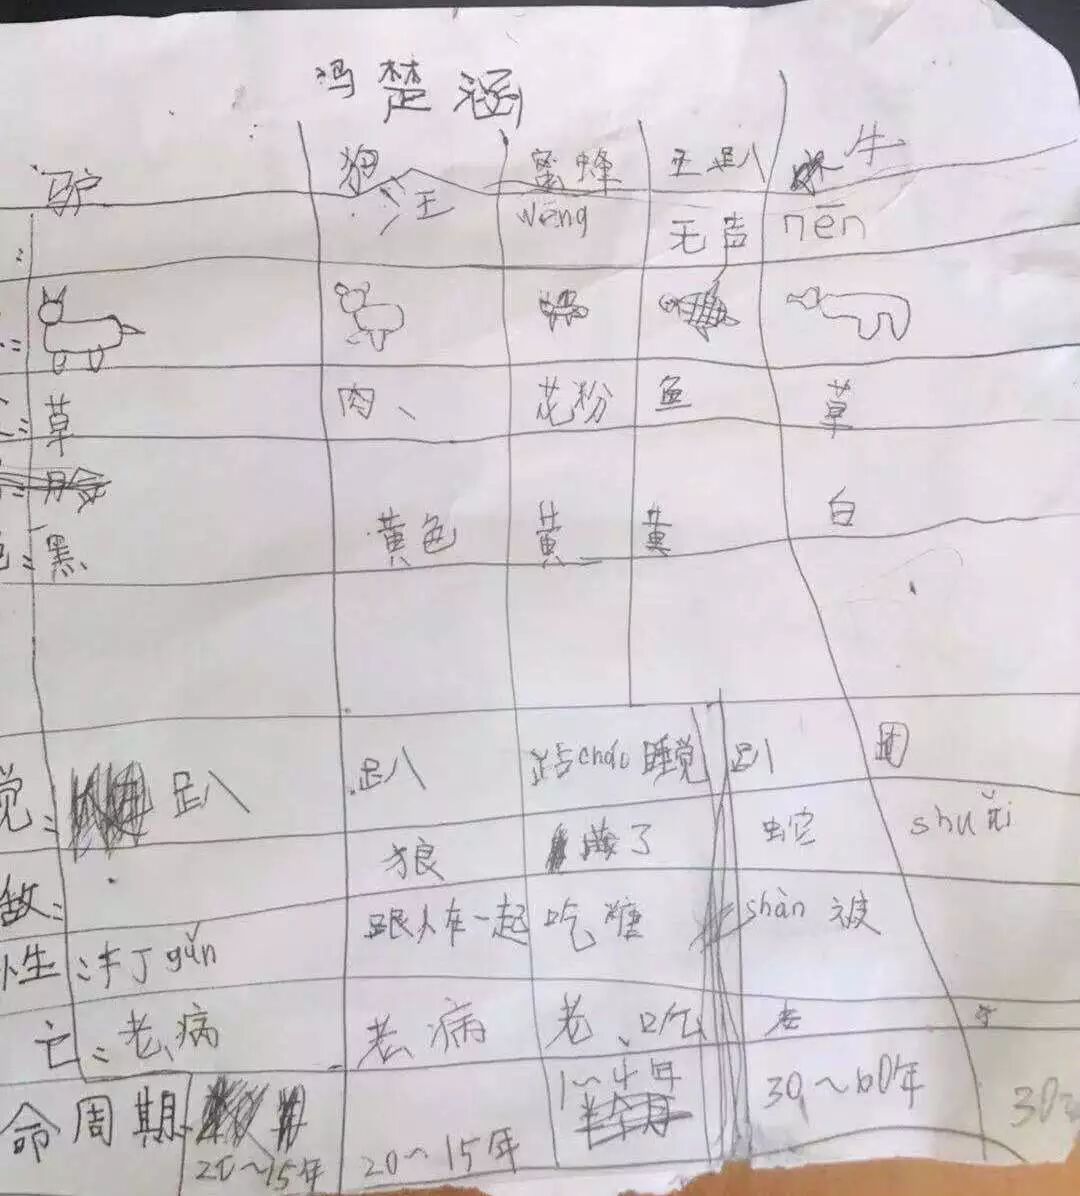 冯楚涵
驴 狗 蜜蜂 王趴 牛
: 汪 wēng 无声 nēn
草 肉、 花粉 鱼 草
: 黑 黄色 黄 黄 白
觉: 趴 趴 站cháo睡觉 趴
敌: 狼 了 蛇 shuāi
性: 打gǔn 跟人在一起 吃糖 shàn 被
亡: 老、病 老、病 老、吃 老
命周期 20~15年 20~15年 1~4年 30~60年 30